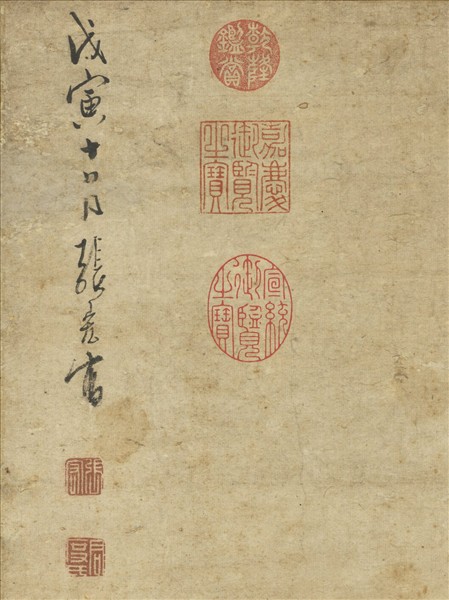 乾隆鑑賞
嘉慶御覽之寶
宣統御覽之寶
戊寅十月張宏寫
張宏